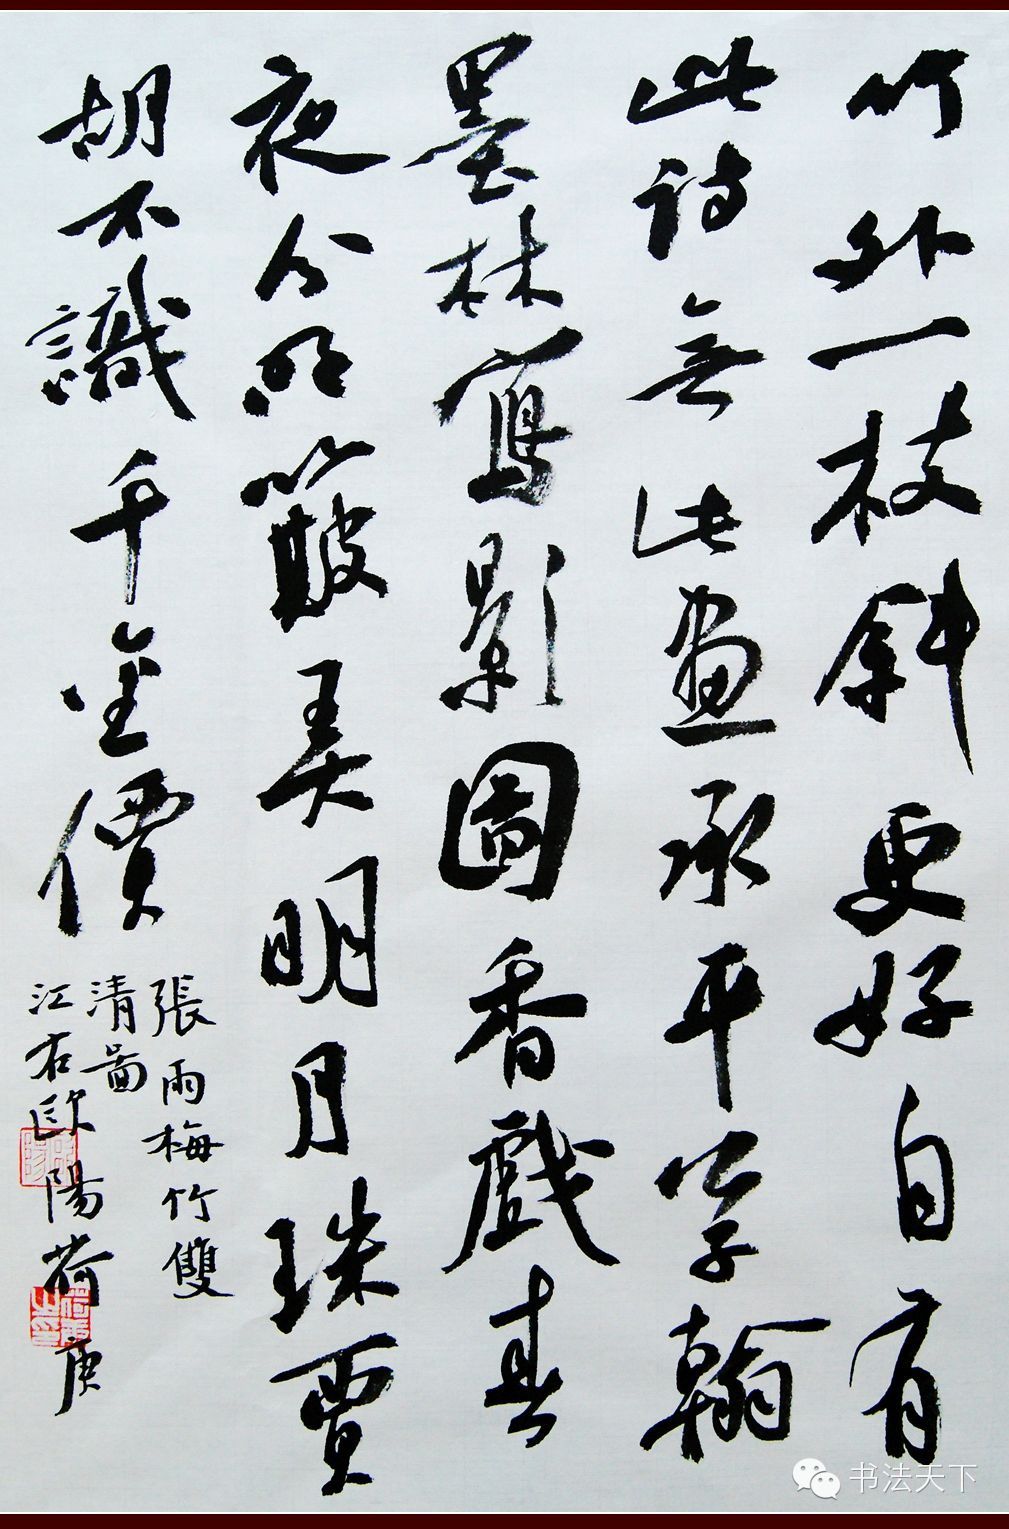 竹外一枝斜更好自有
此詩無此畫承平公子翰
墨林寫影圖香戲春
夜分明簸弄明月珠賈
胡不識千金價
張雨梅竹雙
清圖
江右歐陽荷庚
书法天下